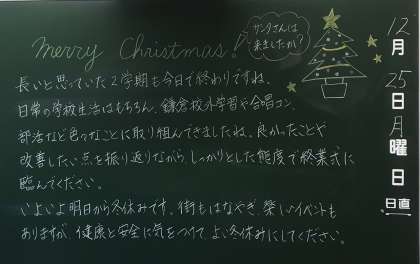 Merry Christmas!
サンタさんは
来ましたか?
長いと思っていた2学期も今日で終わりですね。
日常の学校生活はもちろん、鎌倉校外学習や合唱コン、
部活など色々なことに取り組んできましたね。良かったことや
改善したい点を振り返りながら、しっかりとした態度で終業式に
臨んでください。
いよいよ明日から冬休みです。街もはなやぎ、楽しいイベントも
ありますが、健康と安全に気をつけて、よい冬休みにしてください。
12月
25日
月曜日
日直